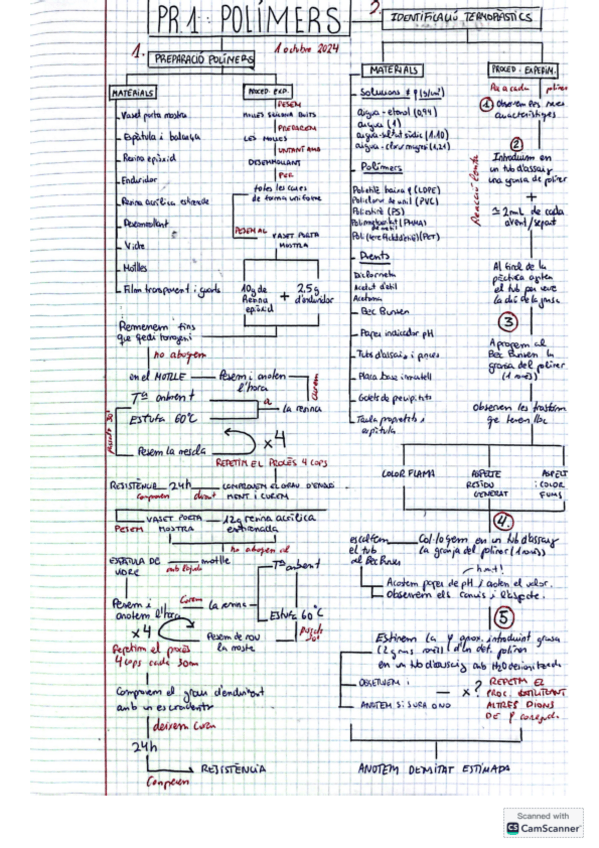 PR.1: POLÍMERS
1 octubre 2024
1. PREPARACIÓ POLÍMERS
MATERIALS
- Vaset porta mostra
- Espàtula i balança
- Resina epòxid
- Enduridor
- Resina acrílica estirade
- Desemotllant
- Vidre
- Motlles
- Film transparent i guants
PROCED. EXP.
PESEM
MOTLLES SILICONA BUITS
PREPAREM
LES MOTLLES
UNTANT AMB
DESEMMOLLANT
PER
totes les cares
de forma uniforme
PESEM AL
VASET PORTA
MOSTRA
10g de
Resina
epòxid
+
2,5g
d'enduridor
Remenem fins
que quedi homogeni
ho aboquem
en el MOTLLE
Pesem i anotem
l'hora
Curem
Tª ambient
ESTUFA 60°C
a
la resina
Pesem la mescla
x4
REPETIM EL PROCÉS 4 COPS
RESISTÈNCIA
24h
Comparem
durant
COMPROVEM EL GRAU D'ENDURI
MENT I CUREM
Pesem
VASET PORTA
MOSTRA
12g resina acrílica
estirenada
ho aboquem al
ESPÀTULA DE
VIDRE
motlle
Tª ambient
Estufa 60°C
Pesem i
anotem l'hora
Curem
la resina
x4
Pesem de nou
la mostra
Repetim el procés
4 cops cada 30m
Comprovem el grau d'enduriment
amb un escuradents
deixem curar
24h
Comparem
RESISTÈNCIA
2. IDENTIFICACIÓ TERMOPLÀSTICS
MATERIALS
- Solucions ≠ ρ (g/cm³)
aigua - etanol (0,94)
aigua (1)
aigua - sal clorur sòdic (1.10)
aigua - clorur magnesi (1,21)
- Polímers
Polietilè baixa ρ (LDPE)
Policlorur de vinil (PVC)
Poliestirè (PS)
Polimetacrilat de metil (PMMA)
(PET)
Diclormetà
Acetat d'etil
Acetona
- Bec Bunsen
- Paper indicador pH
- Tubs d'assaig i pinces
- Gotets de precipitats
espàtula
PROCED. EXPERIM.
Per a cada polímer
① Observem les seves
característiques
②
Introduïm en
un tub d'assaig
una granja de polímer
+
≃ 2mL de cada
dvent/separat
Reacció lenta
Al final de la
pràctica agitem
el tub per veure
la dis. de la granja
③
Apropem al
Bec Bunsen la
granja del polímer
(1 més)
observem les transform
que tenen lloc
COLOR FLAMA
ASPECTE
RESIDU
GENERAT
ASPECT
: COLOR
FUMS
④
escalfem
el tub
al Bec Bunsen
Col·loquem en un tub d'assaig
la granja del polímer (1 més)
Acotem paper de pH i anotem el valor.
Observem els canvis i l'aspecte.
⑤
Estimem la ρ aprox. introduint granja
d'un det. polímer
en un tub d'assaig amb H2O desionitzada
OBSERVEM i
ANOTEM SI SURA O NO
x?
REPETIM EL
PROC. UTILITZANT
ALTRES DIONS
DE ρ conegud.
ANOTEM DENSITAT ESTIMADA
Scanned with
CS CamScanner